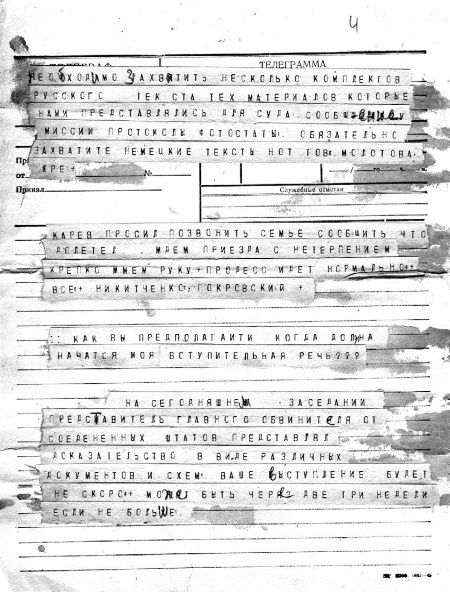 4
ТЕЛЕГРАФ ТЕЛЕГРАММА
НЕОБХОДИМО ЗАХВАТИТЬ НЕСКОЛЬКО КОМПЛЕКТОВ
РУССКОГО ТЕКСТА ТЕХ МАТЕРИАЛОВ КОТОРЫЕ
НАМИ ПРЕДСТАВЛЯЛИСЬ ДЛЯ СУДА
МИССИИ ПРОТОКОЛЫ ФОТОСТАТЫ. ОБЯЗАТЕЛЬНО
ЗАХВАТИТЕ НЕМЕЦКИЕ ТЕКСТЫ НОТ ТОВ. МОЛОТОВА.
от №
Принял
Служебные отметки
КАРЕВ ПРОСИЛ ПОЗВОНИТЬ СЕМЬЕ СООБЩИТЬ ЧТО
ДОЛЕТЕЛ ЖДЕМ ПРИЕЗДА С НЕТЕРПЕНИЕМ
КРЕПКО ЖМЕМ РУКУ + ПРОЦЕСС ИДЕТ НОРМАЛЬНО ++
ВСЕ ++ НИКИТЧЕНКО, ПОКРОВСКИЙ +
:: КАК ВЫ ПРЕДПОЛАГАИТИ КОГДА ДОЛЖНА
НАЧАТСЯ МОЯ ВСТУПИТЕЛЬНАЯ РЕЧЬ???
НА СЕГОДНЯШНЕМ ЗАСЕДАНИИ
ПРЕДСТАВИТЕЛЬ ГЛАВНОГО ОБВИНИТЕЛЯ ОТ
СОЕДЕНЕННЫХ ШТАТОВ ПРЕДСТАВЛЯЛ
ДОКАЗАТЕЛЬСТВО В ВИДЕ РАЗЛИЧНЫХ
ДОКУМЕНТОВ И СХЕМ. ВАШЕ ВЫСТУПЛЕНИЕ БУДЕТ
НЕ СКОРО ++ МОЖЕ БЫТЬ ЧЕРЕЗ ДВЕ ТРИ НЕДЕЛИ
ЕСЛИ НЕ БОЛЬШЕ.